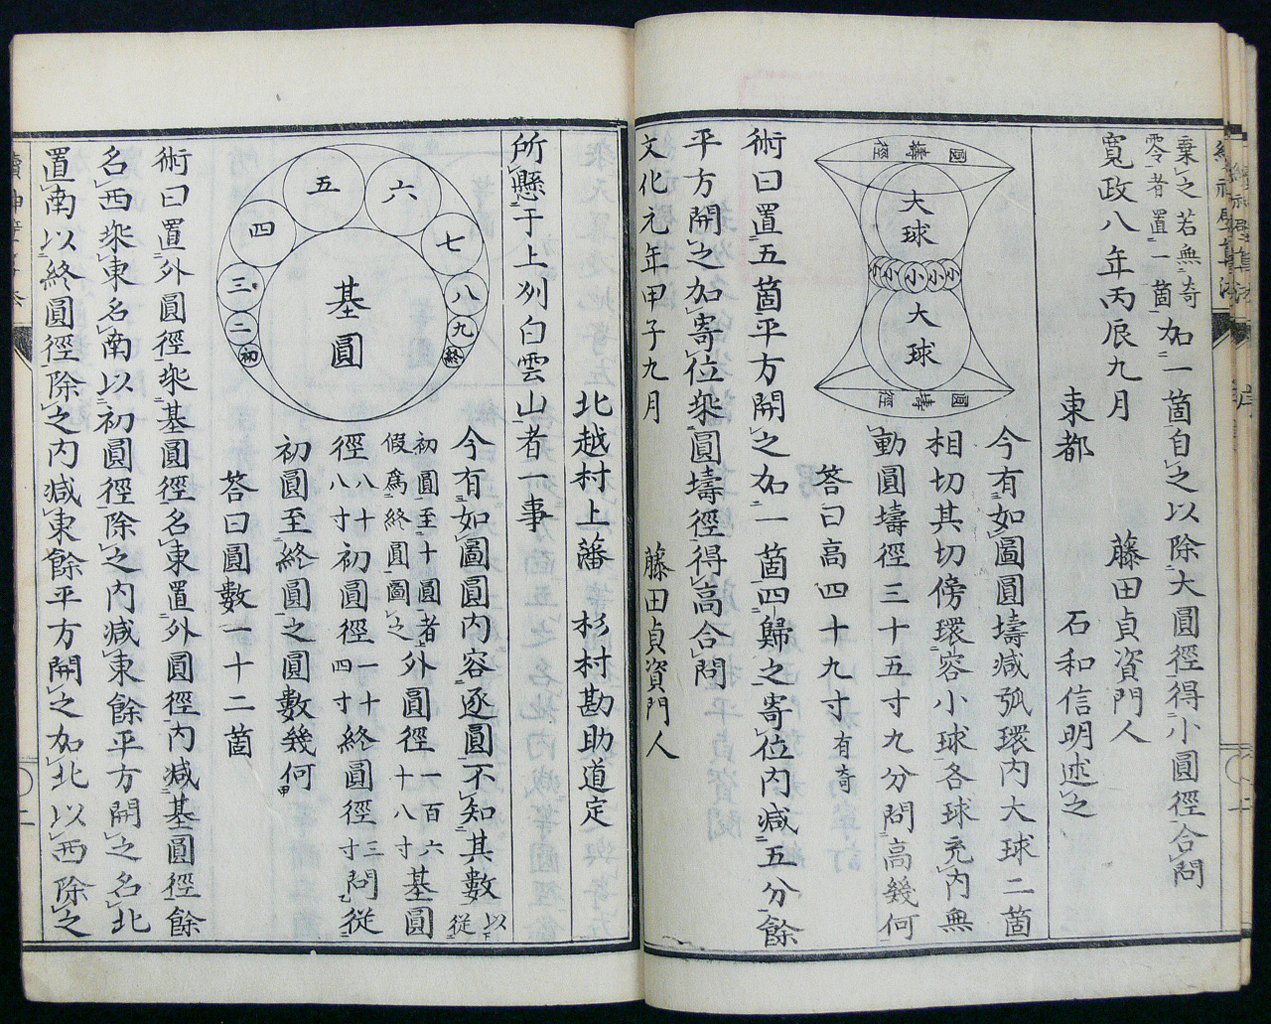 乗之若無奇
零者置一箇
加一箇自之以除大圓徑得小圓徑合問
寛政八年丙辰九月
藤田貞資門人
東都
石和信明述之
圓壔徑
大球
小
小
小
小
小
大球
圓壔徑
今有如圖圓壔減弧環内大球二箇
相切其切傍環容小球各球充内無
動圓壔徑三十五寸九分問高幾何
答曰高四十九寸有奇
術曰置五箇平方開之加一箇四歸之寄位内減五分餘
平方開之加寄位乗圓壔徑得高合問
文化元年甲子九月
藤田貞資門人
北越村上藩
杉村勘助道定
所懸于上刕白雲山者一事
基圓
初
二
三
四
五
六
七
八
九
終
今有如圖圓内容逐圓不知其數以下從
初圓至十圓者
假爲終圓圖之
外圓徑一百六十八寸基圓
徑八十八寸初圓徑一十四寸終圓徑三寸問從
初圓至終圓之圓數幾何
答曰圓數一十二箇
術曰置外圓徑乗基圓徑名東置外圓徑内減基圓徑餘
名西乗東名南以初圓徑除之内減東餘平方開之名北
置南以終圓徑除之内減東餘平方開之加北以西除之